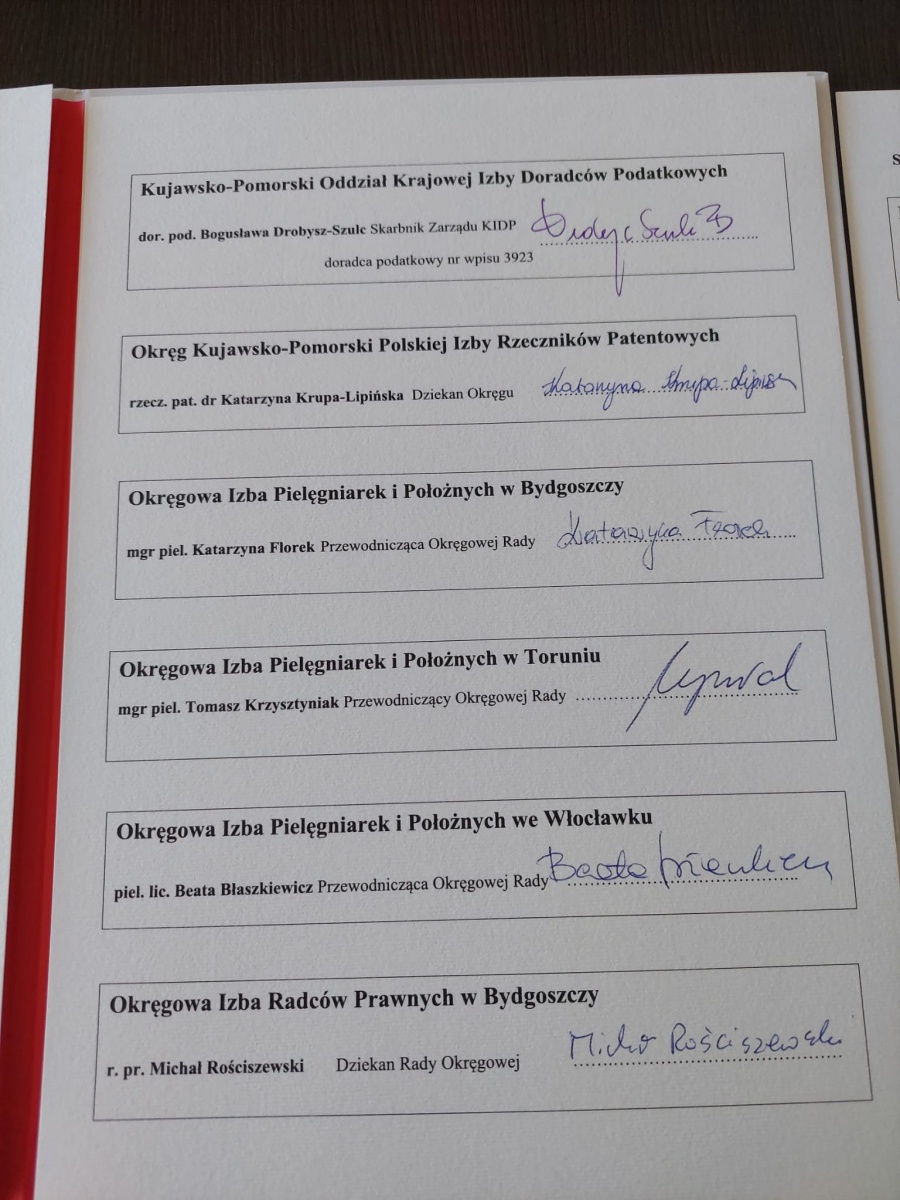 Kujawsko-Pomorski Oddział Krajowej Izby Doradców Podatkowych
dor. pod. Bogusława Drobysz-Szulc Skarbnik Zarządu KIDP
doradca podatkowy nr wpisu 3923
Okręg Kujawsko-Pomorski Polskiej Izby Rzeczników Patentowych
rzecz. pat. dr Katarzyna Krupa-Lipińska Dziekan Okręgu Katarzyna Krupa-Lipińska
Okręgowa Izba Pielęgniarek i Położnych w Bydgoszczy
mgr piel. Katarzyna Florek Przewodnicząca Okręgowej Rady Katarzyna Florek
Okręgowa Izba Pielęgniarek i Położnych w Toruniu
mgr piel. Tomasz Krzysztyniak Przewodniczący Okręgowej Rady
Okręgowa Izba Pielęgniarek i Położnych we Włocławku
piel. lic. Beata Błaszkiewicz Przewodnicząca Okręgowej Rady Beata
Okręgowa Izba Radców Prawnych w Bydgoszczy
r. pr. Michał Rościszewski Dziekan Rady Okręgowej Michał Rościszewski